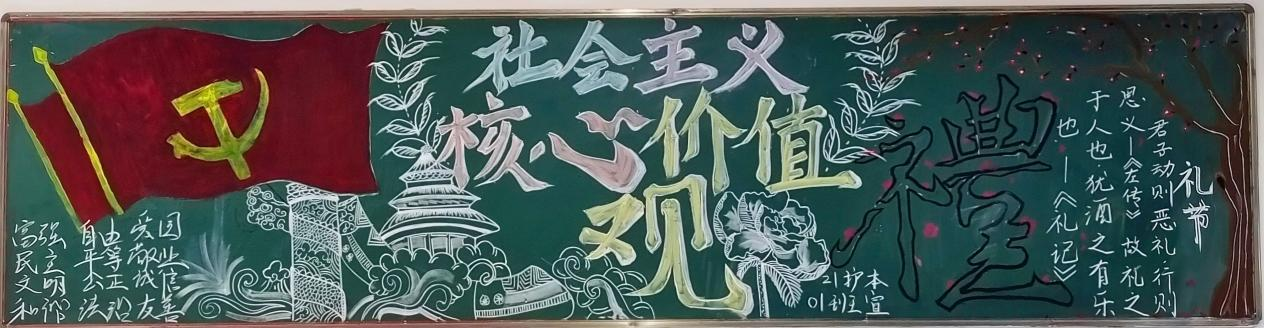 社会主义
核心价值
观
富强 自由 爱国
民主 平等 敬业
文明 公正 诚信
和谐 法治 友善
21护本
01班宣
禮
礼节
君子动则恶礼行则
思义—《左传》 故礼之
于人也犹酒之有乐
也—《礼记》